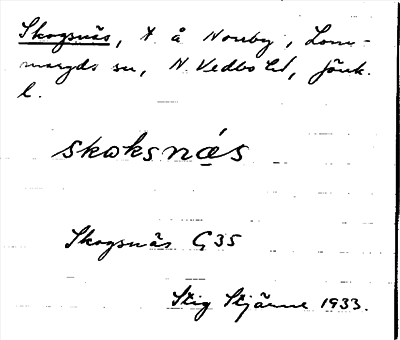 Skogsnäs, t å Norrby, Lom-
maryds sn, N Vedbo hd, Jönk.
l.
skoksnás
Skogsnäs G35
Stig Stjärne 1933.